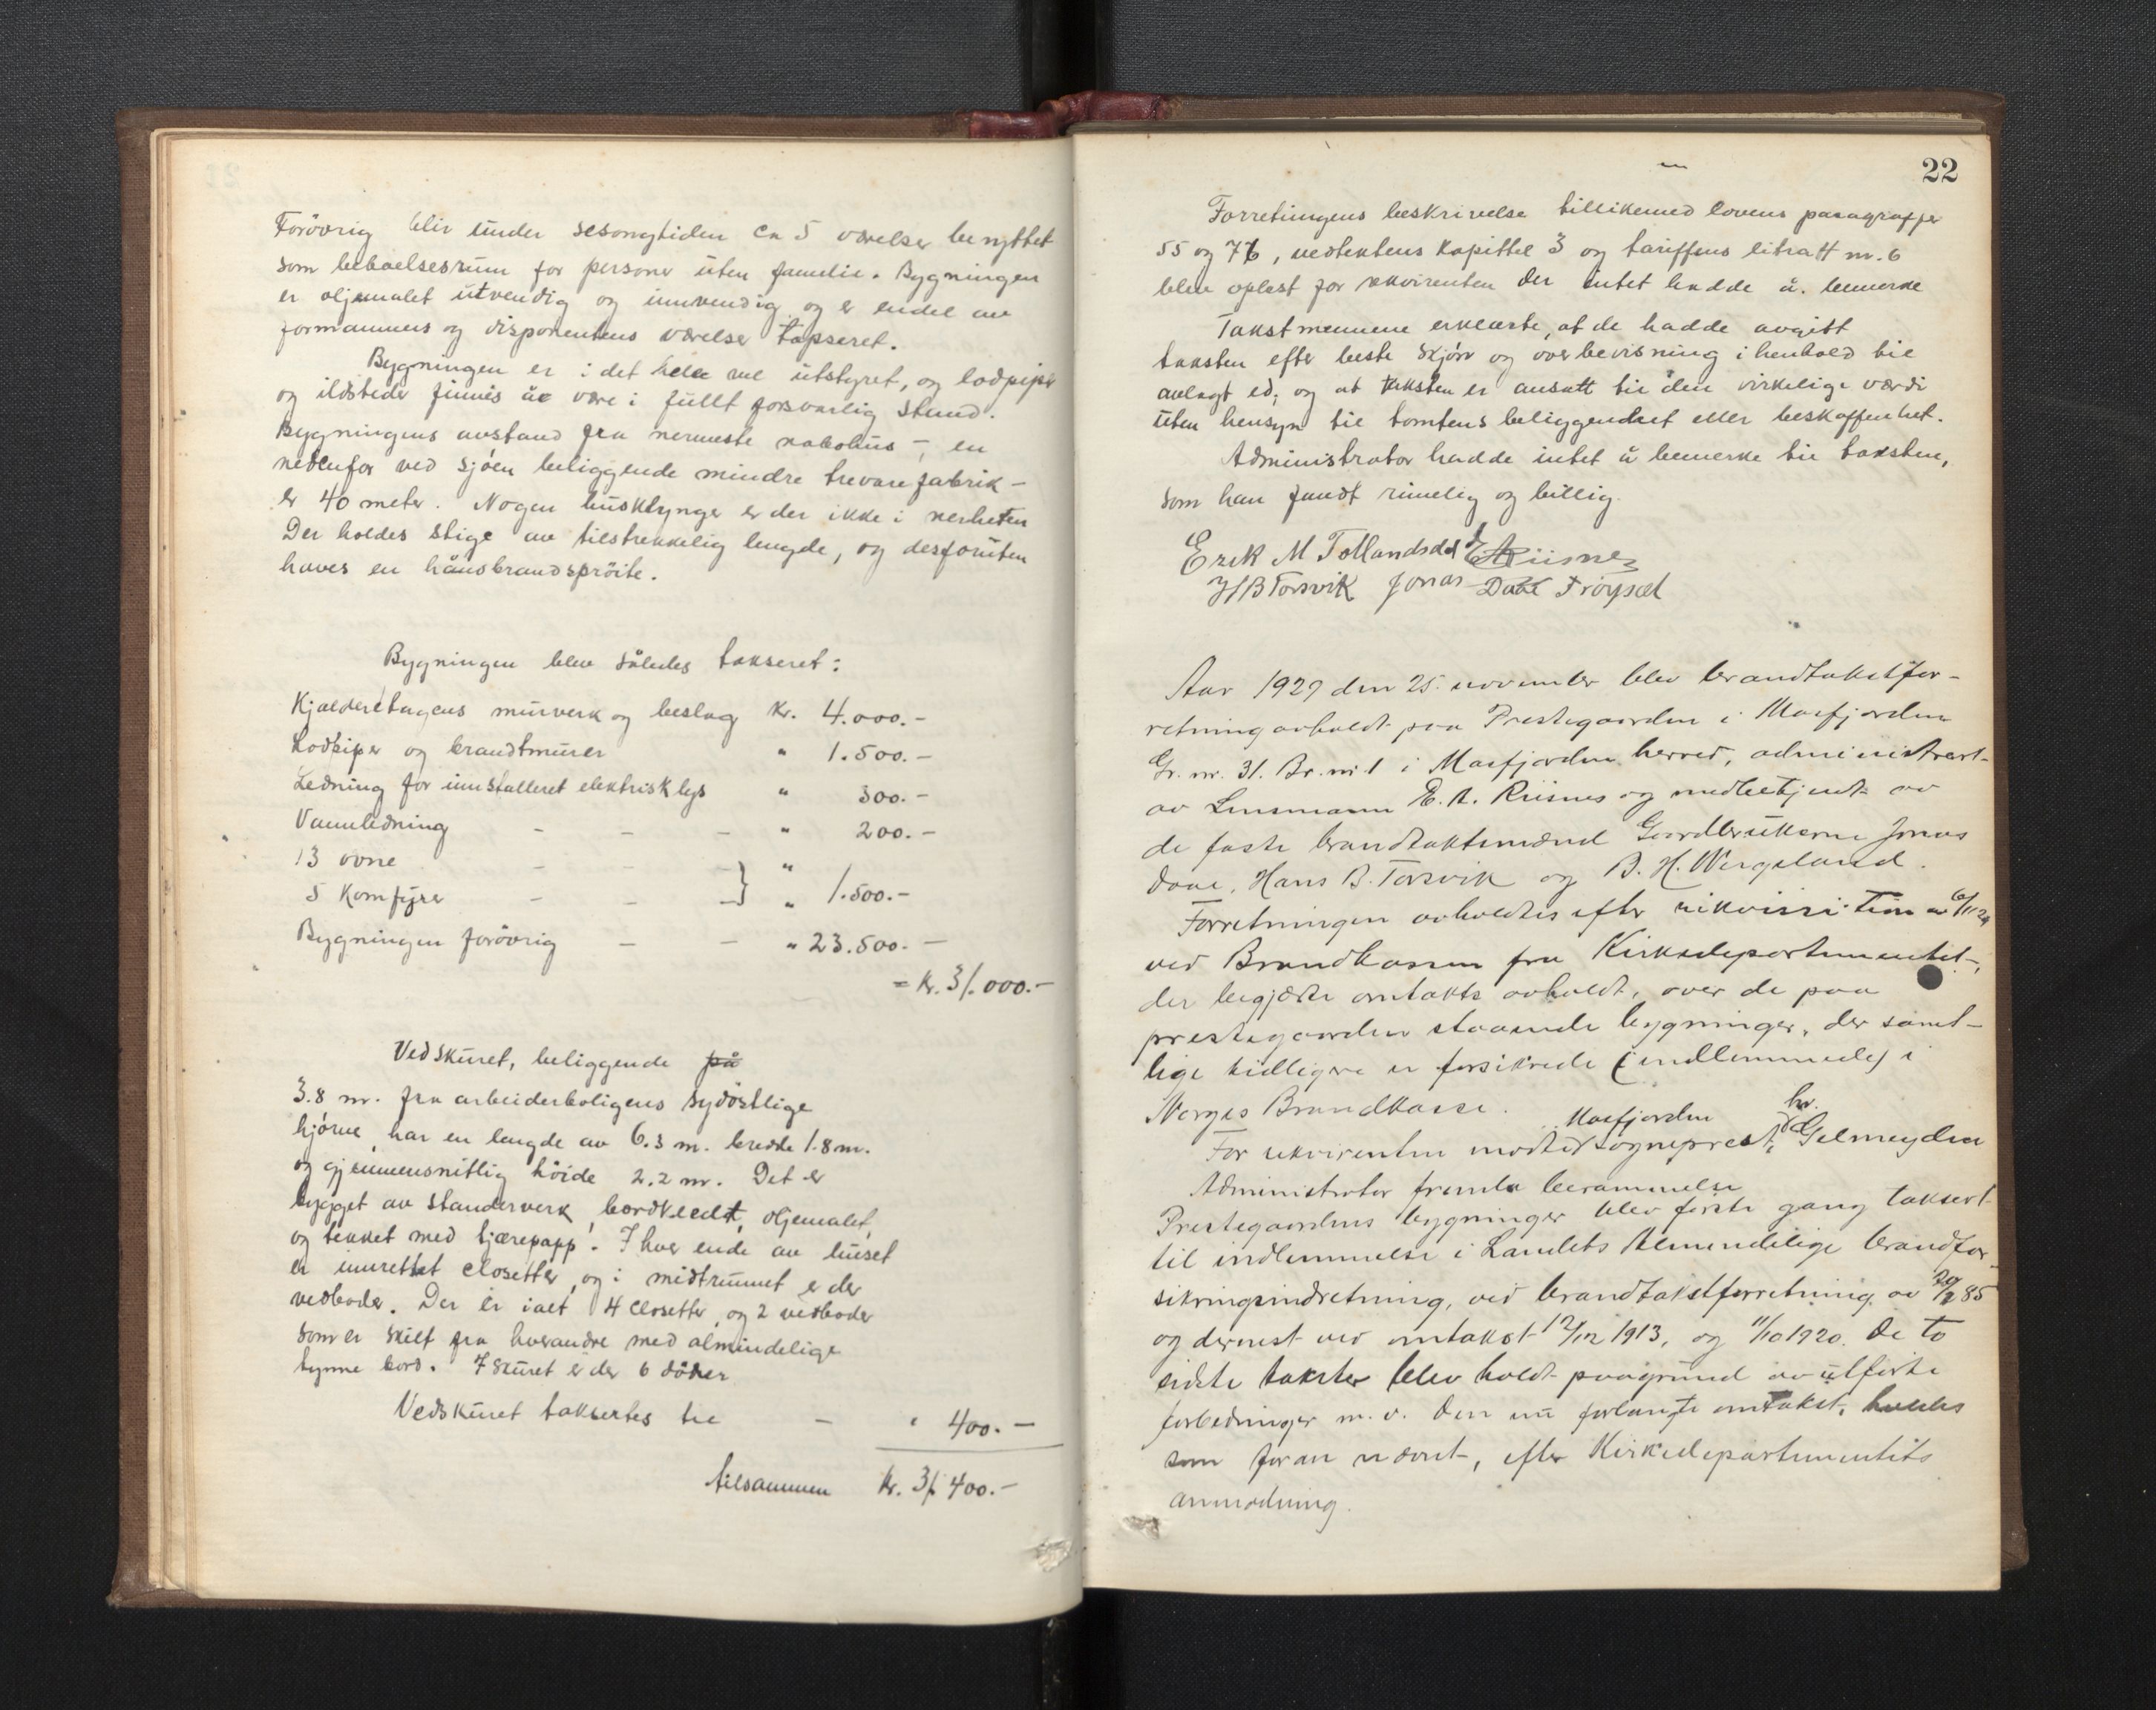 Forövrig blir under sesongtiden ca 5 værelser benyttet
som beboelsesrum for personer uten familie. Bygningen
er oljemalet utvendig og innvendig og er endel av
formannens og disponentens værelser tapseret.
Bygningen er i det hele vel utstyret, og lodpiper
og ildsteder finnes å være i fullt forsvarlig stand.
Bygningens avstand fra nermeste nabohus – en
nedenfor ved sjöen beliggende mindre trevarefabrik –
er 40 meter. Nogen husklynger er der ikke i nerheten
Der holdes stige av tilstrekkelig lengde, og desforuten
haves en håndbrandspröite.
Bygningen blev således takseret:
Kjælderetagens murverk og beslag Kr. 4.000.–
Lodpiper og brandtmurer " 1.500.–
Ledning for innstalleret elektrisk lys " 300.–
Vannledning – – – " 200.–
13 ovne – – – "
5 Komfyrer – – – } " 1.500.–
Bygningen forövrig – – " 23.500.–
= Kr. 31.000.–
Vedskuret, beliggende på
3.8 m. fra arbeiderboligens sydöstlige
hjörne, har en lengde av 6.3 m. bredde 1.8 m.
og gjennemsnitlig höide 2.2 m. Det er
bygget av standerverk, bordkledt, oljemalet,
og tekket med tjærepapp. I hver ende av huset
er innrettet closetter, og i midtrummet er der
vedboder. Der er ialt 4 closetter og 2 vedboder
som er skilt fra hverandre med almindelige
tynne bord. I skuret er der 6 dörer
Vedskuret takseres til – " 400.–
tilsammen Kr. 31.400.–
22
Forretningens beskrivelse tillikemed lovens paragraffer
55 og 76, vedtektens Kapittel 3 og tariffens litratt nr. 6
blev oplest for rekvirenten der intet hadde å bemerke
Takstmennene erklærte, at de hadde avgitt
taksten efter beste skjön og overbevisning i henhold til
avlagt ed, og at taksten er ansatt til den virkelige værdi
uten hensyn til tomtens beliggenhet eller beskaffenhet.
Administrator hadde intet å bemerke til taksten,
som han fandt rimelig og billig.
Erik M Tollandsdal E A Riisnes
H B Torsvik Jonas Dale Fröyset
Aar 1929 den 25. november blev brandtakstfor-
retning avholdt paa Prestegaarden i Masfjorden
Gr. nr. 31. Br. nr 1 i Masfjorden herred, administrert
av Lensmann E. A. Riisnes og medbetjent av
de faste brandtakstmænd Gaardbrukerne Jonas
Daae, Hans B. Torsvik og B. H. Wergeland.
Forretningen avholdtes efter rekvisition av 6/11 29
ved Brandkassen fra Kirkedepartementet,
der begjærte omtakst avholdt, over de paa
prestegaarden staaende bygninger, der samt-
lige tidligere er forsikrede (indlemmede) i
Norges Brandkasse.
For rekvirenten mødte Masfjorden sogneprest, hr. Gelmeyden
Administrator fremla berammelse
Prestegaardens bygninger blev første gang taksert
til indlemmelse i Landets Almindelige brandfor-
sikringsindretning, ved brandtakstforretning av 85
og dernest ved omtakst 12/12 1913, og 11/10 1920. De to
sidste takster blev holdt paagrund av utførte
forbedringer m. v. Den nu forlangte omtakst, holdes
som foran nævnt, efter Kirkedepartementets
anmodning.